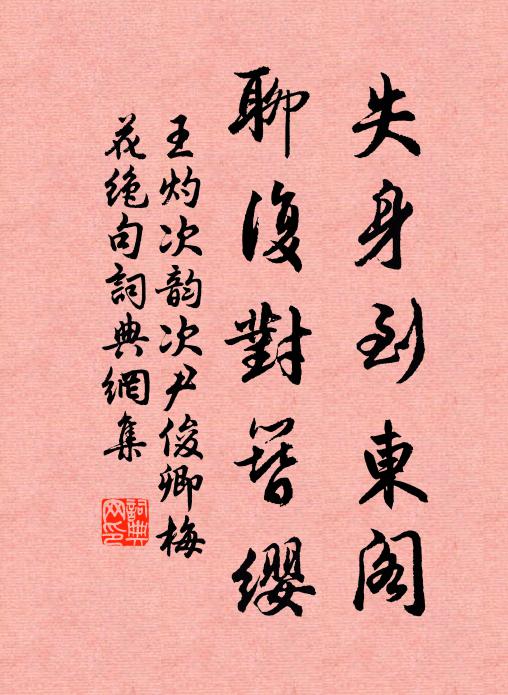 失身到東阁
聊復對簪缨
王灼次韵次尹俊卿梅
花绝句詞典網集
詞典
网印